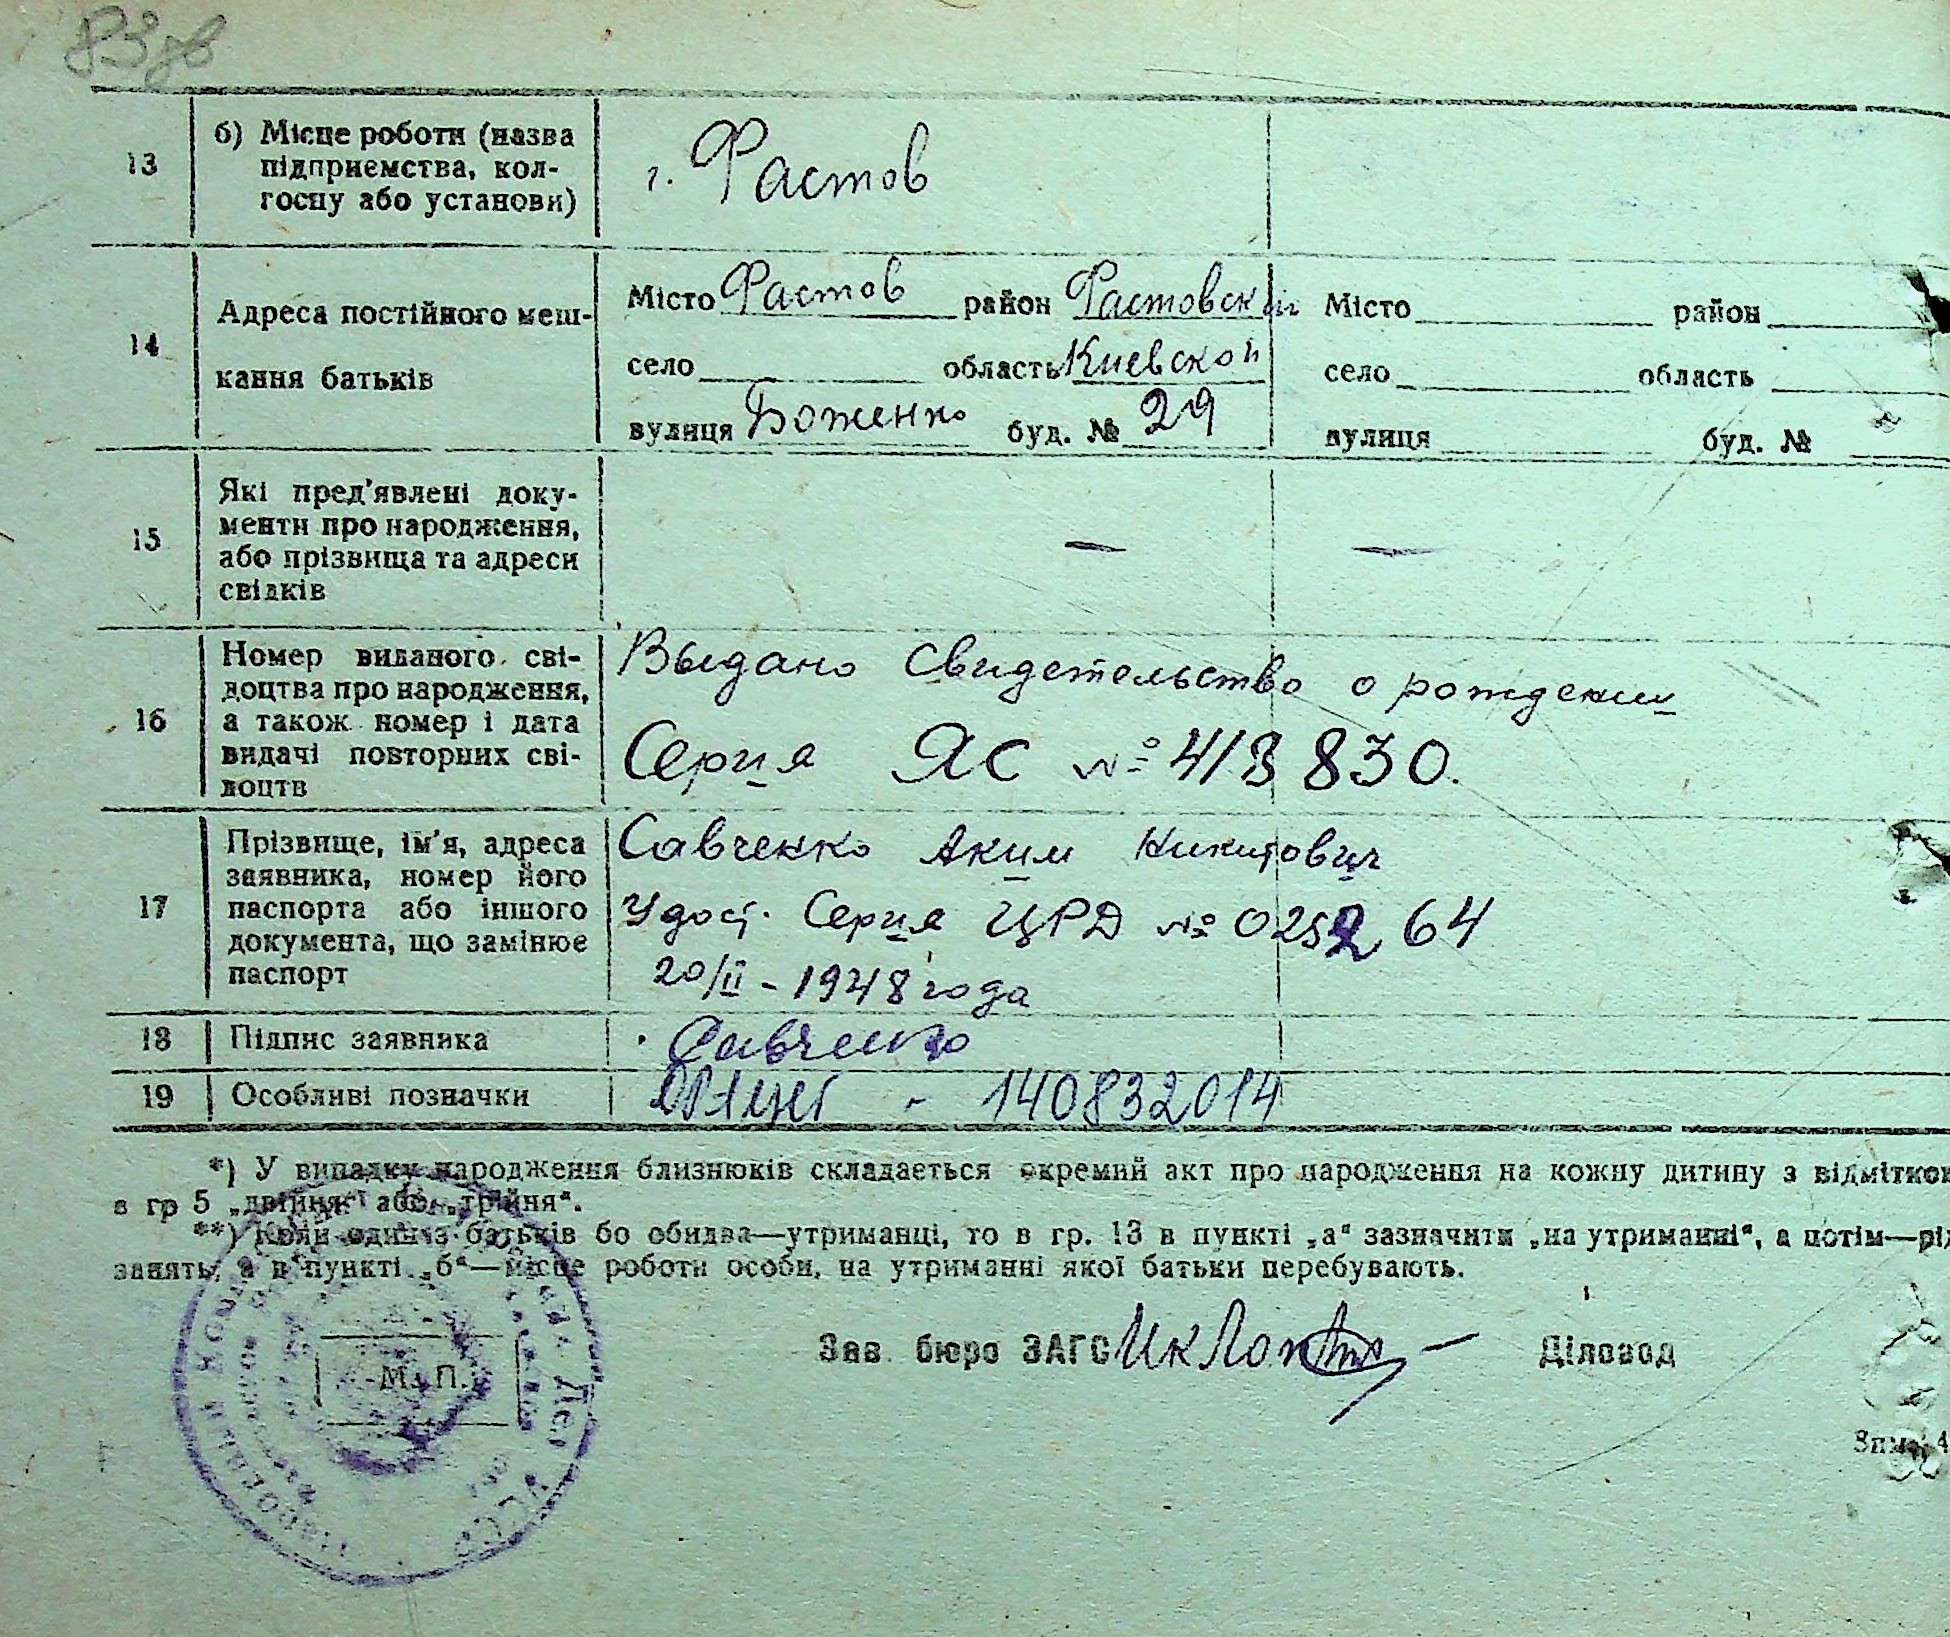 13
б) Місце роботи (назва
підприємства, кол-
госпу або установи)
г. Фастов
14
Адреса постійного меш-
кання батьків
Місто Фастов район Фастовский
село область Киевской
вулиця Боженко буд. № 29
Місто район
село область
вулиця буд. №
15
Які пред'явлені доку-
менти про народження,
або прізвища та адреси
свідків
— —
16
Номер виданого сві-
доцтва про народження,
а також номер і дата
видачі повторних сві-
доцтв
Выдано Свидетельство о рождении
Серия ЯС № 413830.
17
Прізвище, ім'я, адреса
заявника, номер його
паспорта або іншого
документа, що замінює
паспорт
Савченко Аким Никитович
Удост. Серия ЦРД № 025264
20/II - 1948 года
18
Підпис заявника
Савченко
19
Особливі позначки
- 140832014
*) У випадку народження близнюків складається окремий акт про народження на кожну дитину з відміткою
в гр 5 „двійня“ або „трійня“.
**) Коли один з батьків бо обидва—утриманці, то в гр. 13 в пункті „а“ зазначити „на утриманні“, а потім—рід
занять, а в пункті „б“—місце роботи особи, на утриманні якої батьки перебувають.
М. П.
Зав. бюро ЗАГС
Діловод